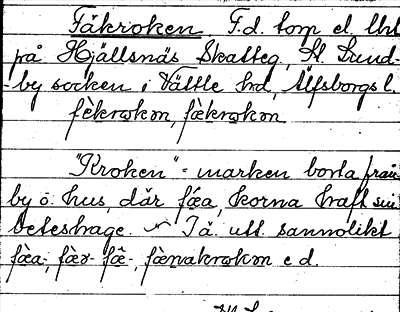 Fäkroken F.d. torp el. lht
på Hjällsnäs Skatteg, St. Lund-
-by socken i Vättle hd, Älfsborgs l.
fèkrokən, fækrokən
"Kroken" = marken borta från
by o. hus, där fäa, korna haft sin
beteshage. Iä. utt. sannolikt
fæa-, fæə- fæ-, fænakrokən e d.